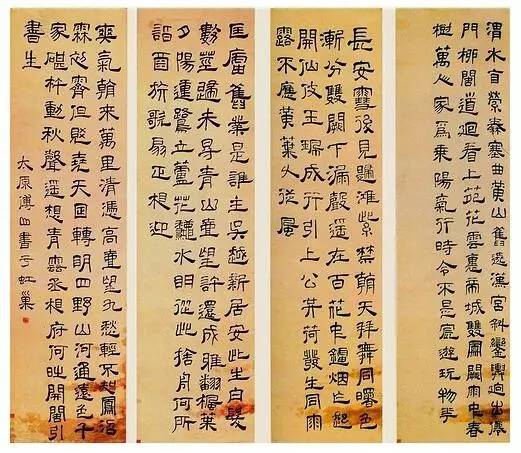 渭水自縈秦塞曲黃山舊遶漢宮斜鑾輿迥出僊
門柳閣道迴看上苑花雲裏帝城雙鳳闕雨中春
樹萬人家爲乘陽氣行時令不是宸遊玩物華
長安雪後見歸鴻紫禁朝天拜舞同曙色
漸分雙闕下漏聲遙在百花中爐烟乍起
開仙仗玉珮成行引上公共荷發生同雨
露不應黃葉久從風
匡廬舊業是誰主吳越新居安此生白髮
數莖歸未得青山一望計還成雅翻楓葉
夕陽動鷺立蘆花秋水明從此捨舟何所
詣酒旂歌扇正相迎
爽氣朝來萬里清憑高一望九愁輕不知鳳沼
霖初霽但覺堯天日轉明四野山河通遠色千
家砧杵動秋聲遙想青雲丞相府何時開閣引
書生
太原傅山書于虹巢